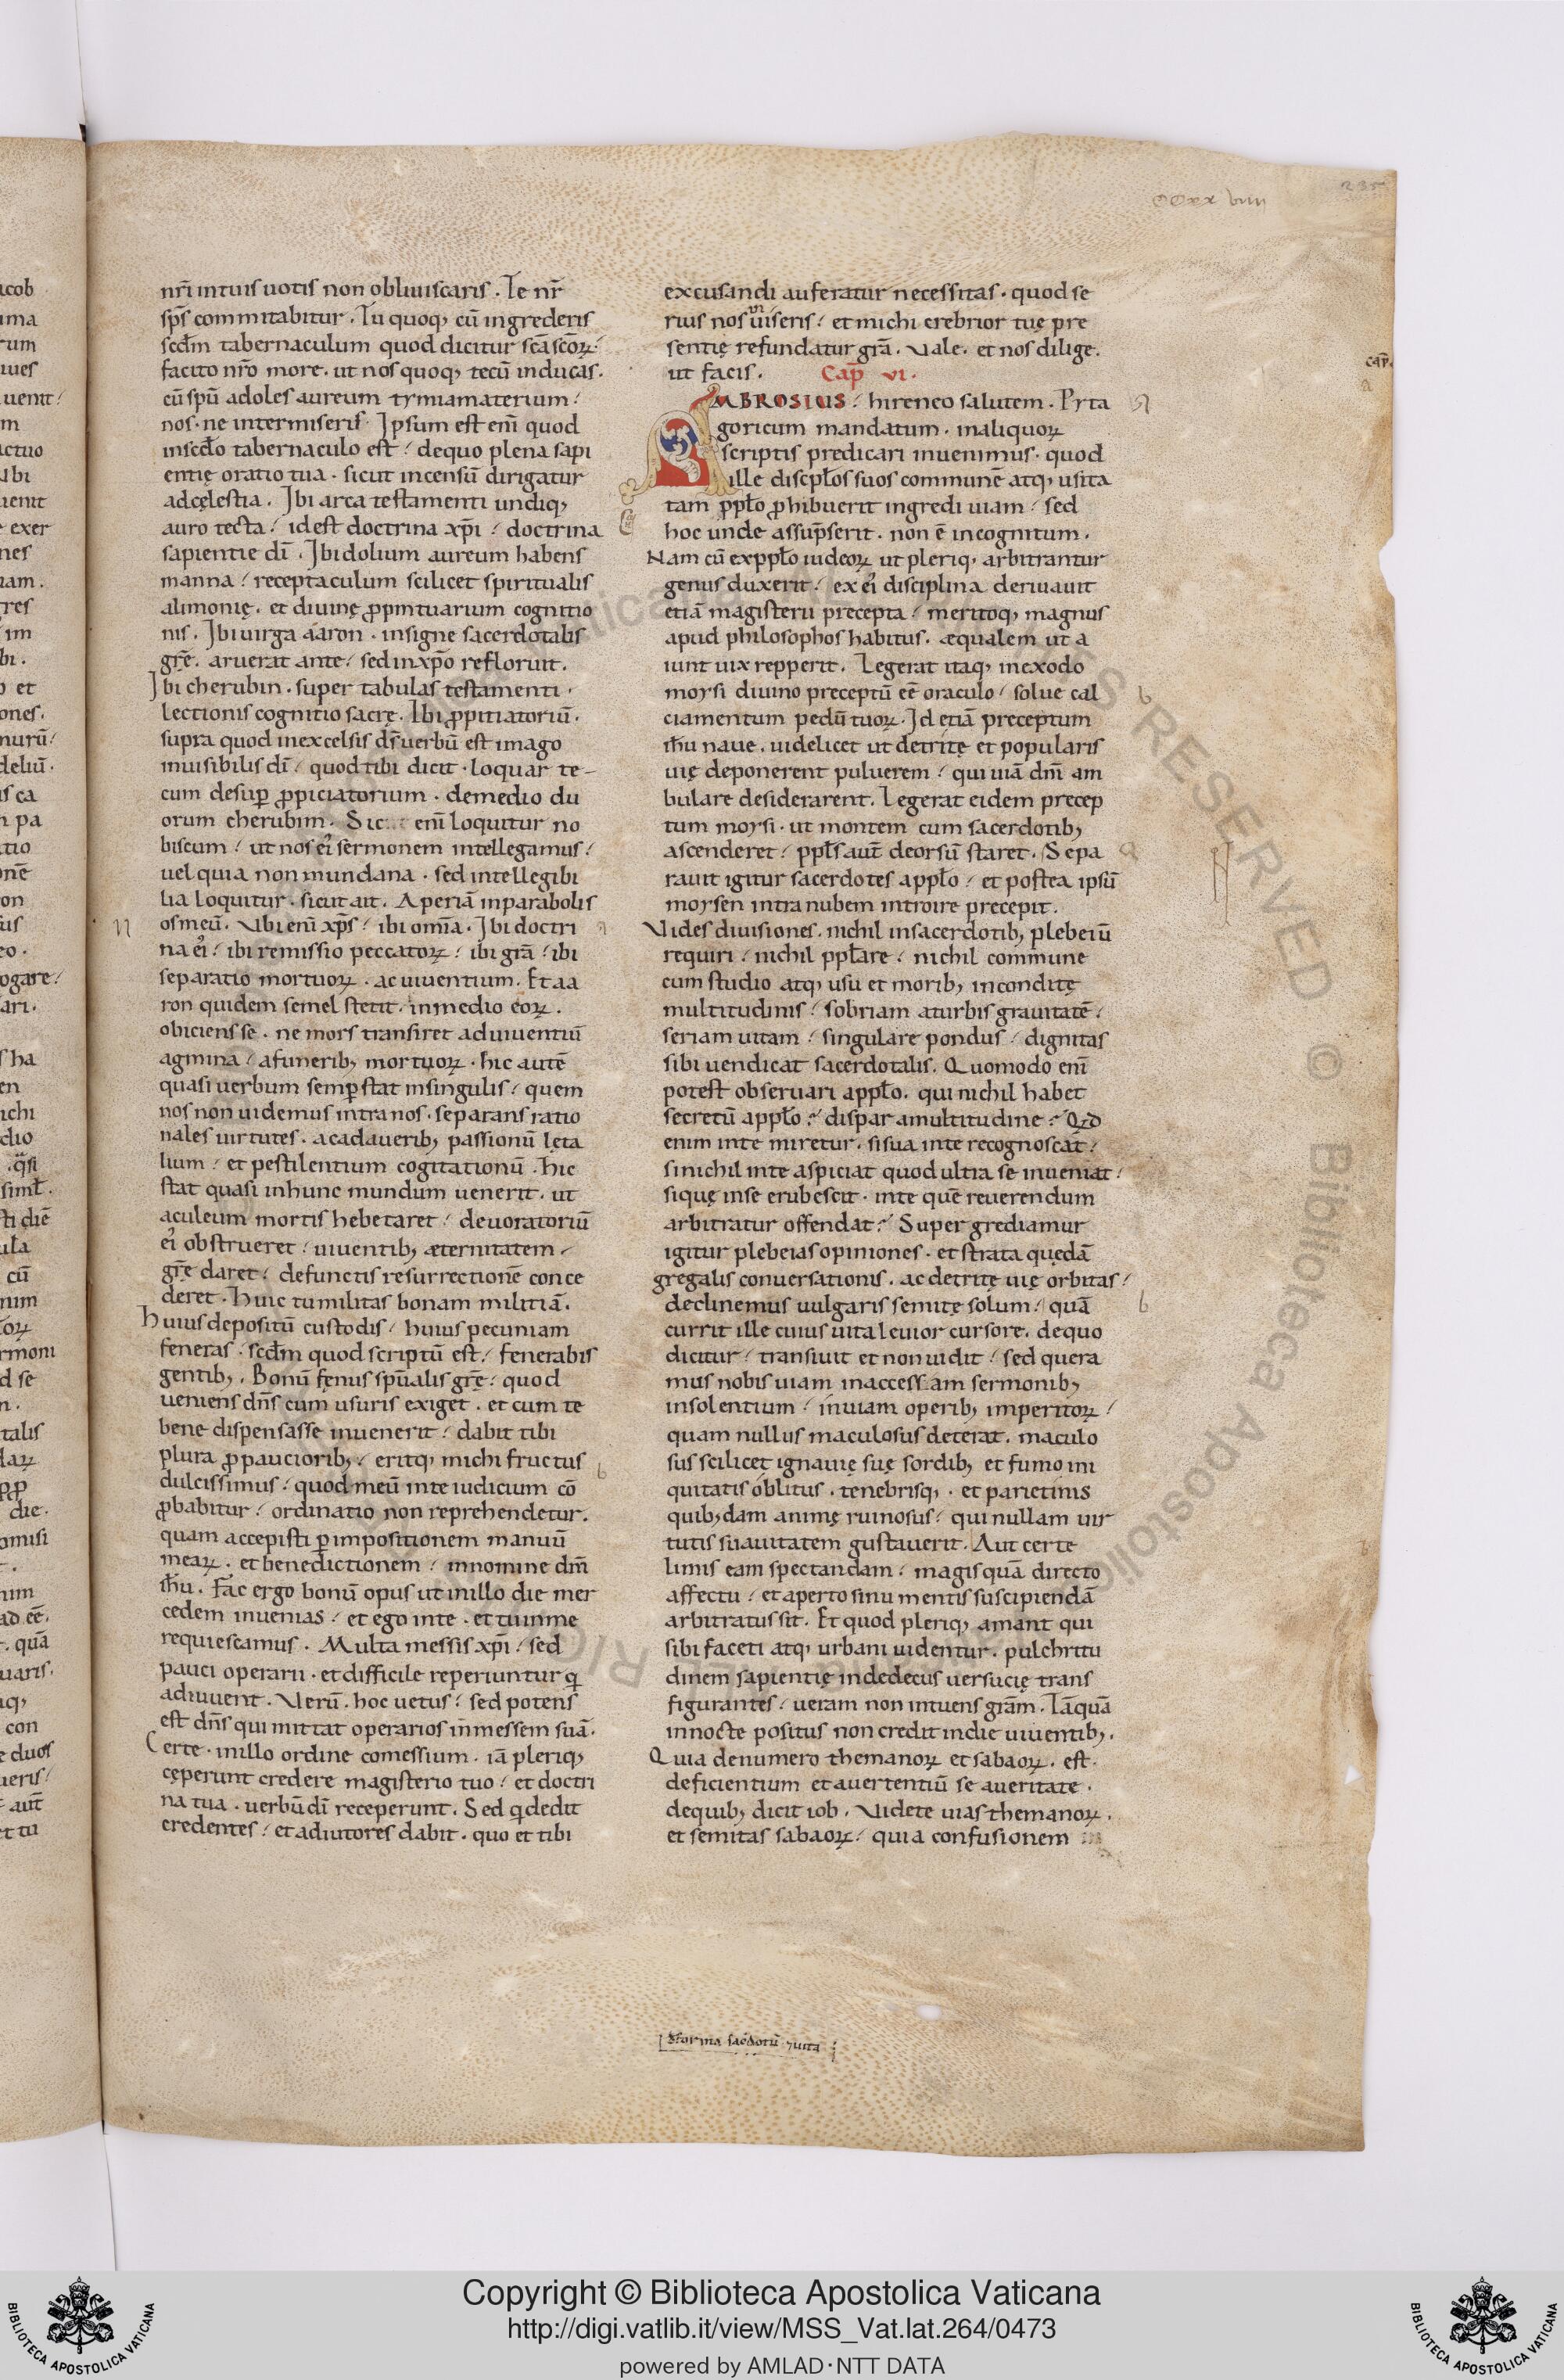 CCxx viiii
235
nr̄i intuis uotis non obliuiscaris. Te nr̄
sp̄s commitabitur. Tu quoq; cū ingrederis
scd̄m tabernaculum quod dicitur sc̄a sc̄oꝝ:
facito nr̄o more. ut nos quoq; tecū inducas.
cū spū adoles aureum tymiamaterium:
nos. ne intermiseris. Ipsum est enī quod
inscd̄o tabernaculo est: dequo plena sapi
entię oratio tua. sicut incensū dirigatur
adcęlestia. Ibi arca testamenti undiq;
auro tecta: idest doctrina xp̄i: doctrina
sapientie dī. Ibi dolium aureum habens
manna: receptaculum scilicet spiritualis
alimonię. et diuinę ꝓpmtuarium cognitio
nis. Ibi uirga aaron. insigne sacerdotalis
gr̄ę. aruerat ante: sed inxp̄o refloruit.
Ibi cherubin. super tabulas testamenti.
lectionis cognitio sacrę. Ibi ꝓpitiatoriū.
supra quod inexcelsis ds̄ uerbū est imago
inuisibilis dī: quod tibi dicit. loquar te-
cum desuꝑ ꝓpiciatorium. demedio du
orum cherubim. Sic enī loquitur no
biscum: ut nos ei᾽ sermonem intellegamus:
uel quia non mundana. sed intellegibi
lia loquitur. sicut ait. Aperiā inparabolis
os meū. Vbi enī xp̄s: ibi omīa. Ibi doctri
na ei᾽: ibi remissio peccatoꝝ: ibi gr̄a: ibi
separatio mortuoꝝ. ac uiuentium. Et aa
ron quidem semel stetit. inmedio eoꝝ.
obiciens se. ne mors transiret ad uiuentiū
agmina: afunerib; mortuoꝝ. hic autē
quasi uerbum semꝑ stat insingulis: quem
nos non uidemus intra nos. separans ratio
nales uirtutes. acadauerib; passionū lęta
lium: et pestilentium cogitationū. Hic
stat quasi inhunc mundum uenerit. ut
aculeum mortis hebetaret: deuoratoriū
ei᾽ obstrueret: uiuentib; æternitatem
gr̄ę daret: defunctis resurrectionē conce
deret. Huic tu militas bonam militiā.
Huius depositū custodis: huius pecuniam
feneras. scd̄m quod scriptū est: fenerabis
gentib;. Bonū fęnus spūalis gr̄ę: quod
ueniens dn̄s cum usuris exiget. et cum te
bene dispensasse inuenerit: dabit tibi
plura ꝓpaucioribꝫ: eritq; michi fructus
dulcissimus: quod meū inte iudicium cō
ꝓbabitur: ordinatio non reprehendetur.
quam accepisti ꝑ impositionem manuū
mearꝝ. et benedictionem: innomine dm̄
ih̄u. Fac ergo bonū opus ut inillo die mer
cedem inuenias: et ego inte. et tu inme
requiescamus. Multa messis xp̄i: sed
pauci operarii. et difficile reperiuntur qi
adiuuent. Verū. hoc uetus: sed potens
est dn̄s qui mittat operarios inmessem suā.
Certe. inillo ordine comessium. iā pleriq;
cęperunt credere magisterio tuo: et doctri
na tua. uerbū dī receperunt. Sed qi dedit
credentes: et adiutores dabit. quo et tibi
excusandi auferatur necessitas. quod se
rius nos uiseris: et michi crebrior tuę pre
sentię refundatur gr̄a. Vale. et nos dilige.
ut facis. Cap̄ vi.
AMBROSIUS: hireneo salutem. Pyta
goricum mandatum. inaliquoꝝ
scriptis predicari inuenimus. quod
ille discpl̄os suos communē atq; usita
tam ppl̄o ꝓhibuerit ingredi uiam: sed
hoc unde assūpserit. non ē incognitum.
Nam cū exppl̄o iudeoꝝ ut pleriq; arbitrantur
genus duxerit: ex ei᾽ disciplina deriuauit
etiā magisterii precepta: meritoq; magnus
apud philosophos habitus. æqualem ut a
iunt uix repperit. Legerat itaq; inexodo
moysi diuino preceptū eē oraculo: solue cal
ciamentum pedū tuoꝝ. Id etiā preceptum
ih̄u naue. uidelicet ut detritę et popularis
uię deponerent puluerem: qui uiā dn̄i am
bulare desiderarent. Legerat eidem precep
tum moysi. ut montem cum sacerdotib;
ascenderet: ppl̄s aut̄ deorsū staret. Sepa
rauit igitur sacerdotes appl̄o: et postea ipsū
moysen intra nubem introire precepit.
Vides diuisiones. nichil insacerdotib; plebeiū
requiri: nichil ppl̄are: nichil commune
cum studio atq; usu et morib; inconditę
multitudinis: sobriam aturbis grauitatē:
seriam uitam: singulare pondus: dignitas
sibi uendicat sacerdotalis. Quomodo enī
potest obseruari appl̄o. qui nichil habet
secretū appl̄o: dispar amultitudine: Qd̄
enim inte miretur. si sua inte recognoscat:
si nichil inte aspiciat quod ultra se inueniat:
si quę inse erubescit. inte quē reuerendum
arbitratur offendat: Super grediamur
igitur plebeias opiniones. et strata quędā
gregalis conuersationis. ac detritę uię orbitas:
declinemus uulgaris semitę solum: quā
currit ille cuius uita leuior cursore. dequo
dicitur: transiuit et non uidit: sed quera
mus nobis uiam inaccessam sermonib;
insolentium: inuiam operib; imperitoꝝ:
quam nullus maculosus deterat. maculo
sus scilicet ignauię suę sordib; et fumo ini
quitatis oblitus. tenebrisq;. et parietinis
quib;dam animę ruinosus: qui nullam uir
tutis suauitatem gustauerit. Aut certe
limis eam spectandam: magis quā directo
affectu: et aperto sinu mentis suscipiendā
arbitratus sit. Et quod pleriq; amant qui
sibi faceti atq; urbani uidentur. pulchritu
dinem sapientię indedecus uersucię trans
figurantes: ueram non intuens gr̄am. Tāquā
innocte positus non credit indie uiuentib;.
Quia denumero themanoꝝ et sabaoꝝ. est.
deficientium et auertentiū se aueritate.
dequib; dicit iob. Videte uias themanoꝝ.
et semitas sabaoꝝ: quia confusionem
cap̄.
forma sac̄dotū ⁊ uita
Copyright © Biblioteca Apostolica Vaticana
http://digi.vatlib.it/view/MSS_Vat.lat.264/0473
powered by AMLAD·NTT DATA
BIBLIOTECA APOSTOLICA VATICANA
BIBLIOTECA APOSTOLICA VATICANA